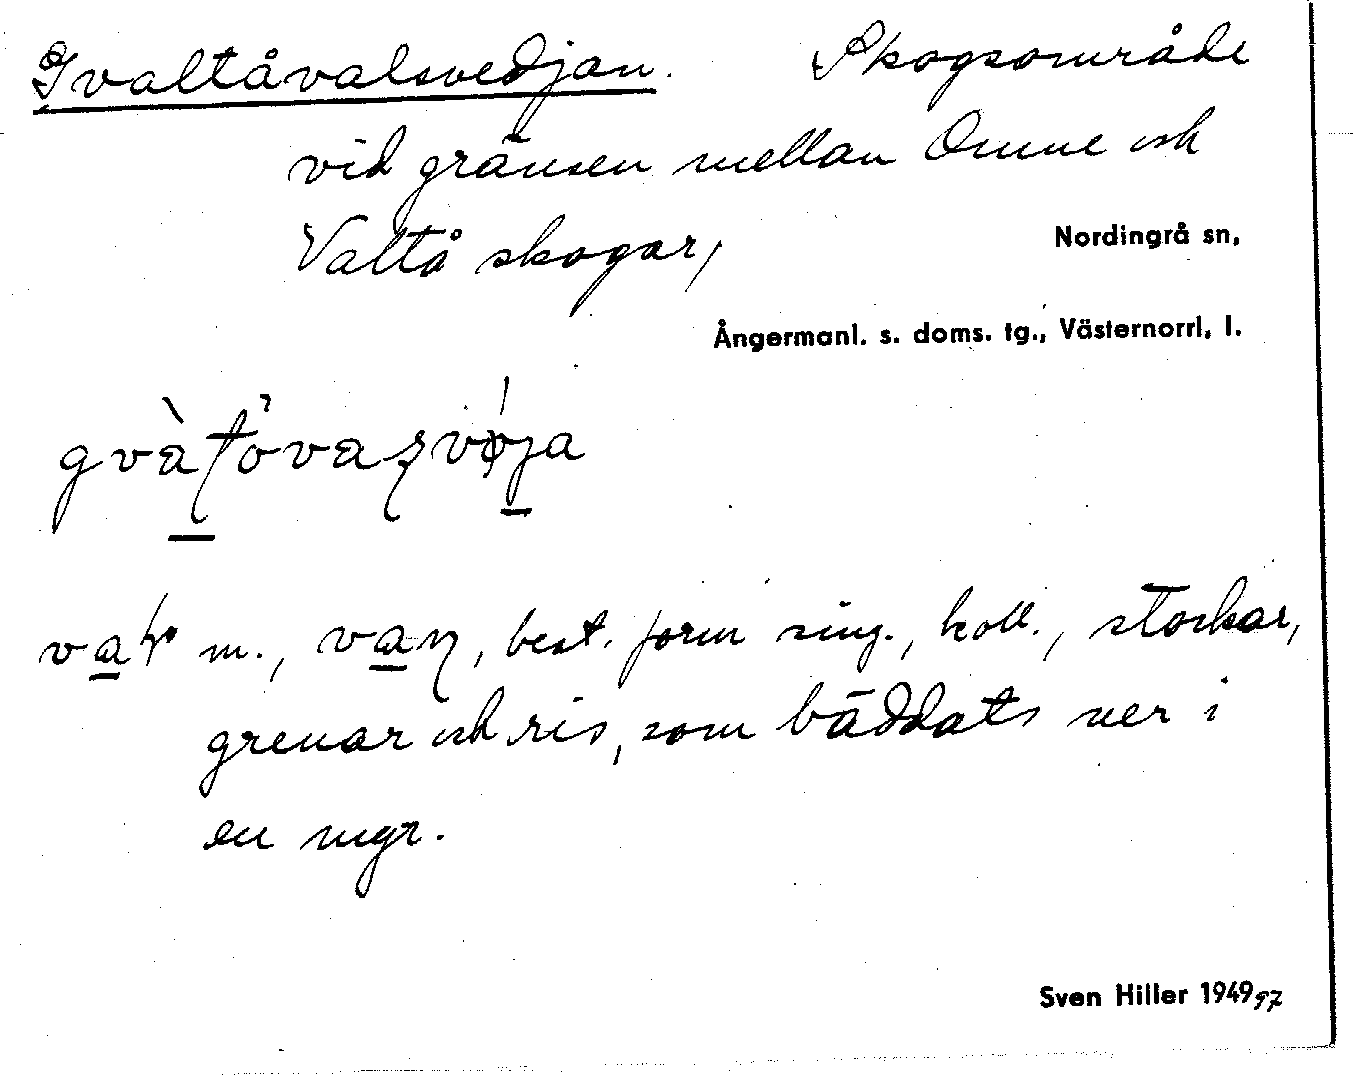 Gvaltåvalsvedjan. Skogsområde
vid gränsen mellan Omne och
Valtå skogar, Nordingrå sn,
Ångermanl. s. doms. tg., Västernorrl. l.
m., best. form sing., koll., stockar,
grenar och ris, som bäddats ner i
en myr.
Sven Hiller 1949